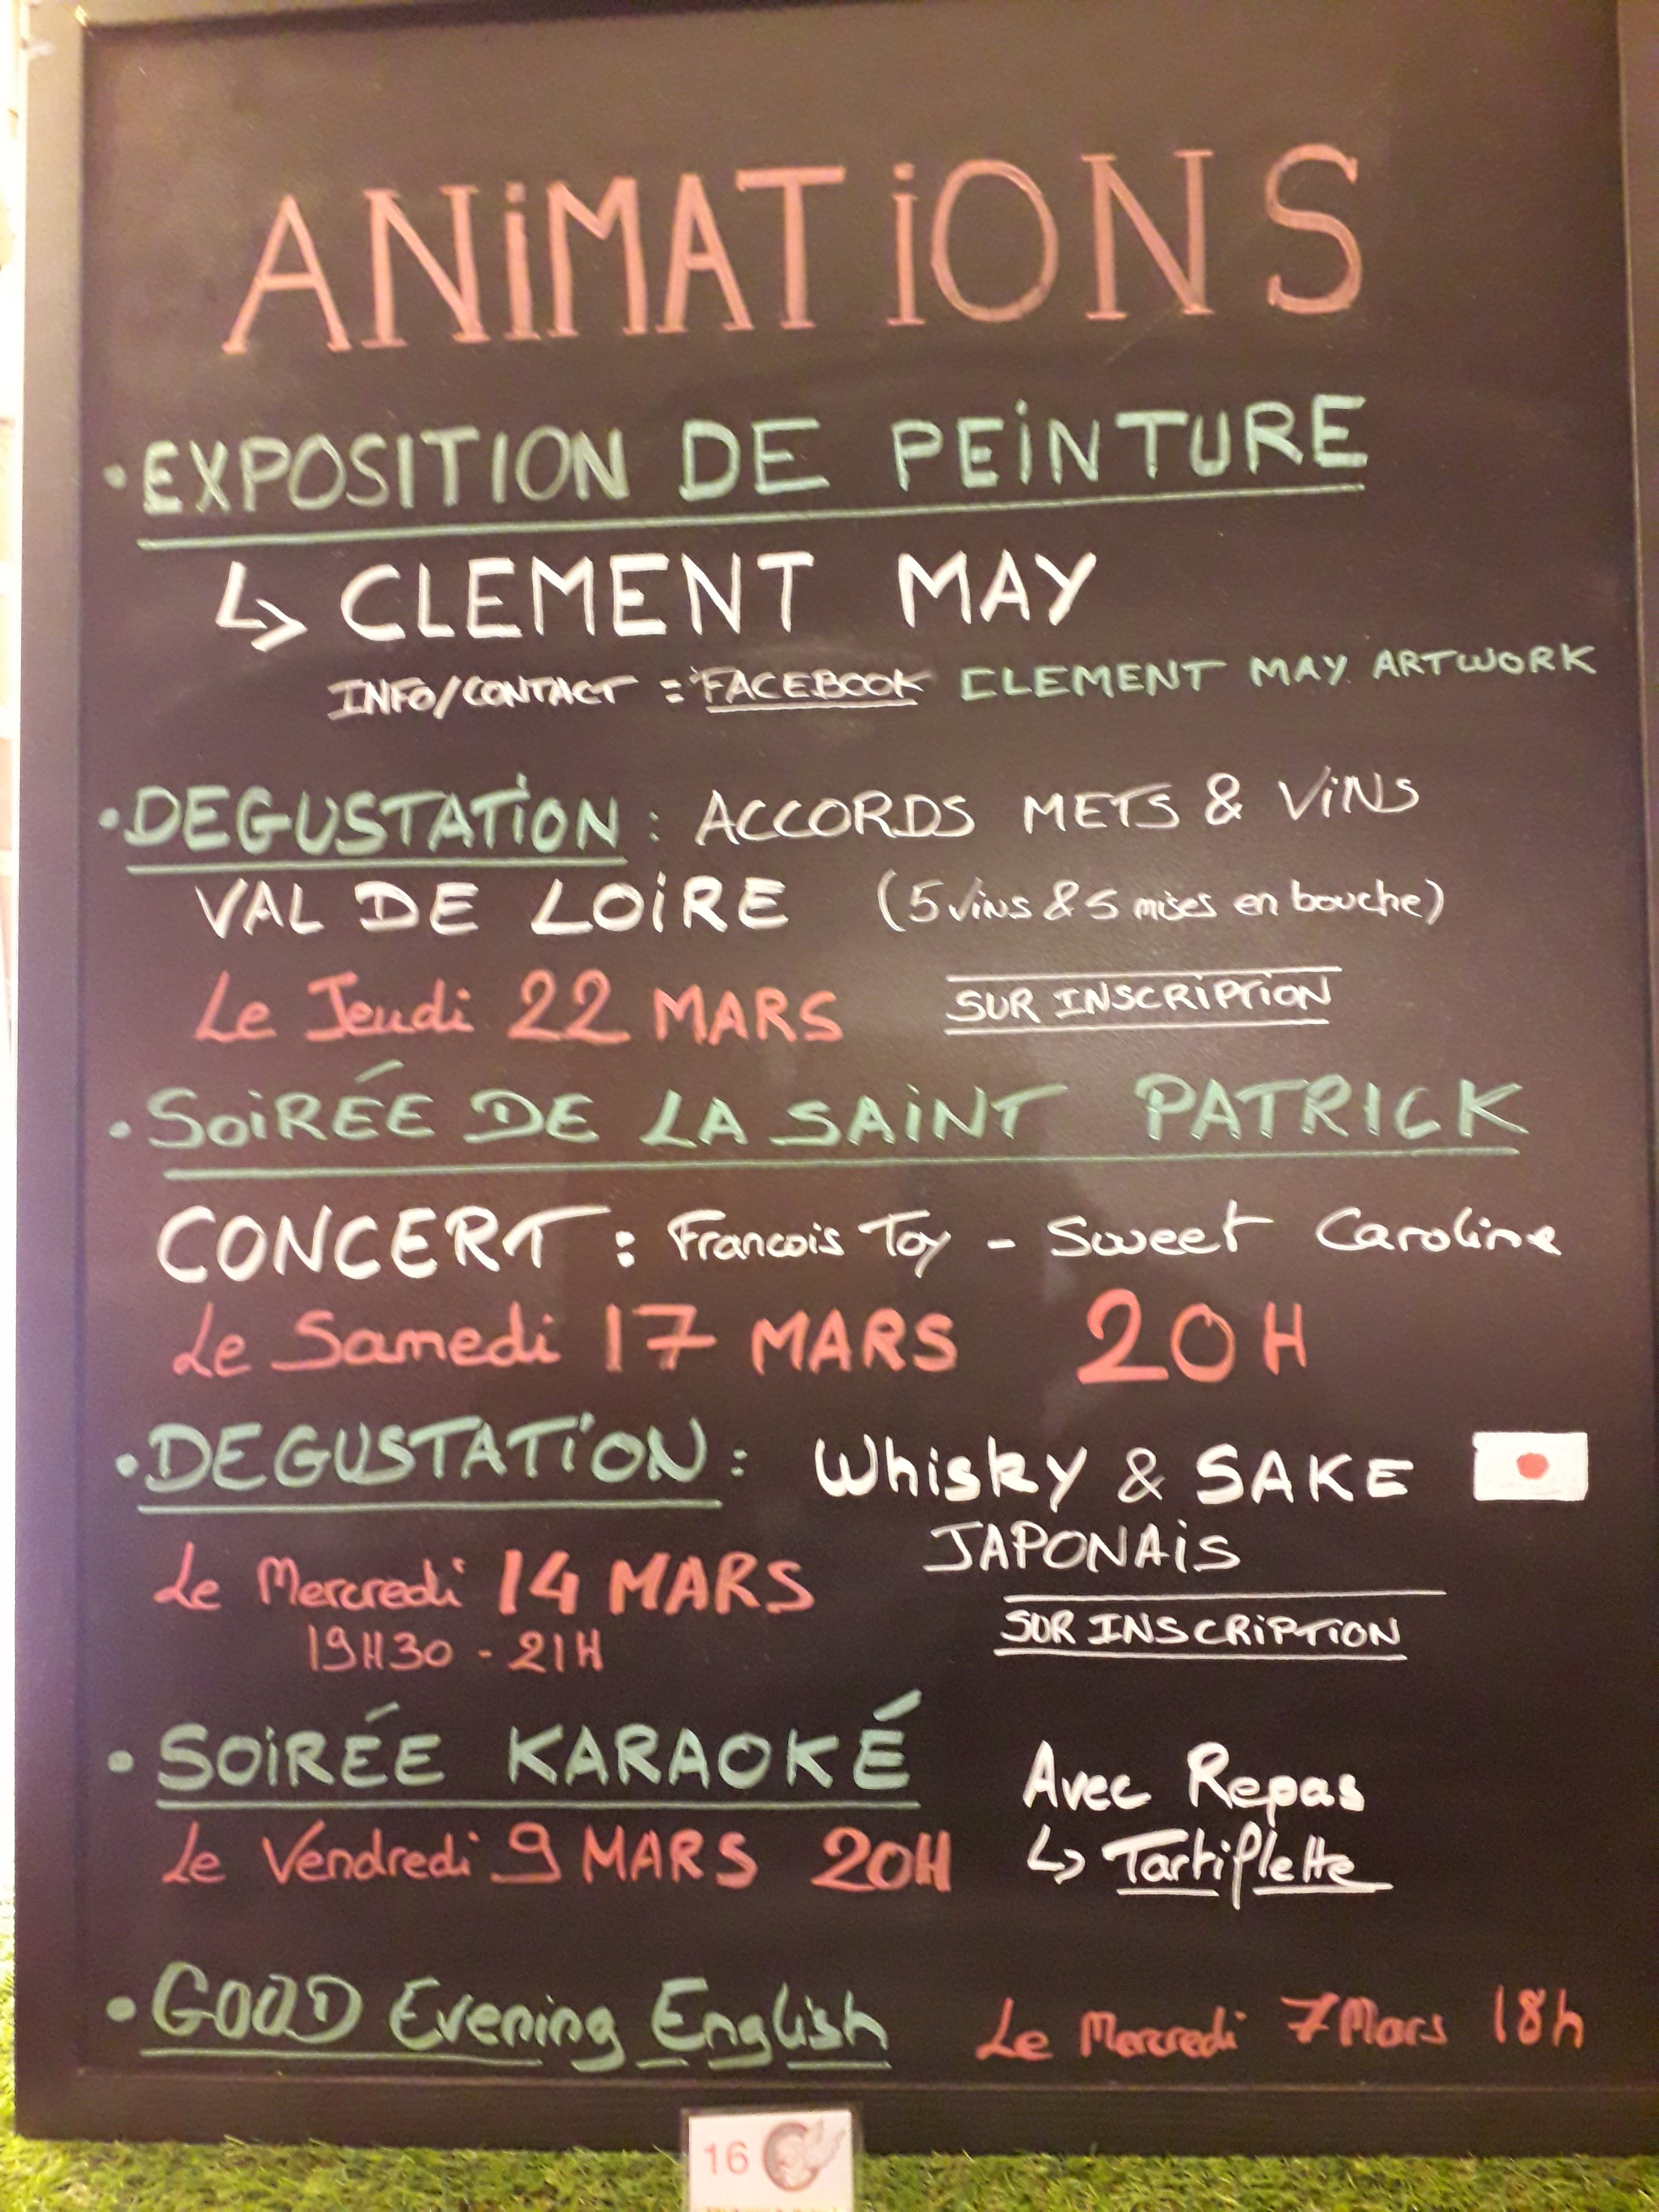 ANiMATiONS
• EXPOSITION DE PEiNTURE
↳ CLEMENT MAY
INFO/CONTACT = FACEBOOK CLEMENT MAY ARTWORK
• DEGUSTATiON : ACCORDS METS & ViNS
VAL DE LOiRE (5 vins & 5 mises en bouche)
Le Jeudi 22 MARS SUR INSCRiPTiON
• SOiRÉE DE LA SAiNT PATRICK
CONCERT : Francois Toy - Sweet Caroline
Le Samedi 17 MARS 20H
• DEGUSTATiON : Whisky & SAKE
JAPONAiS
Le Mercredi 14 MARS
19H30 - 21H
SUR INSCRiPTiON
• SOiRÉE KARAOKÉ Avec Repas
Le Vendredi 9 MARS 20H ↳ Tartiflette
• GOOD Evening English Le Mercredi 7 Mars 18h
16